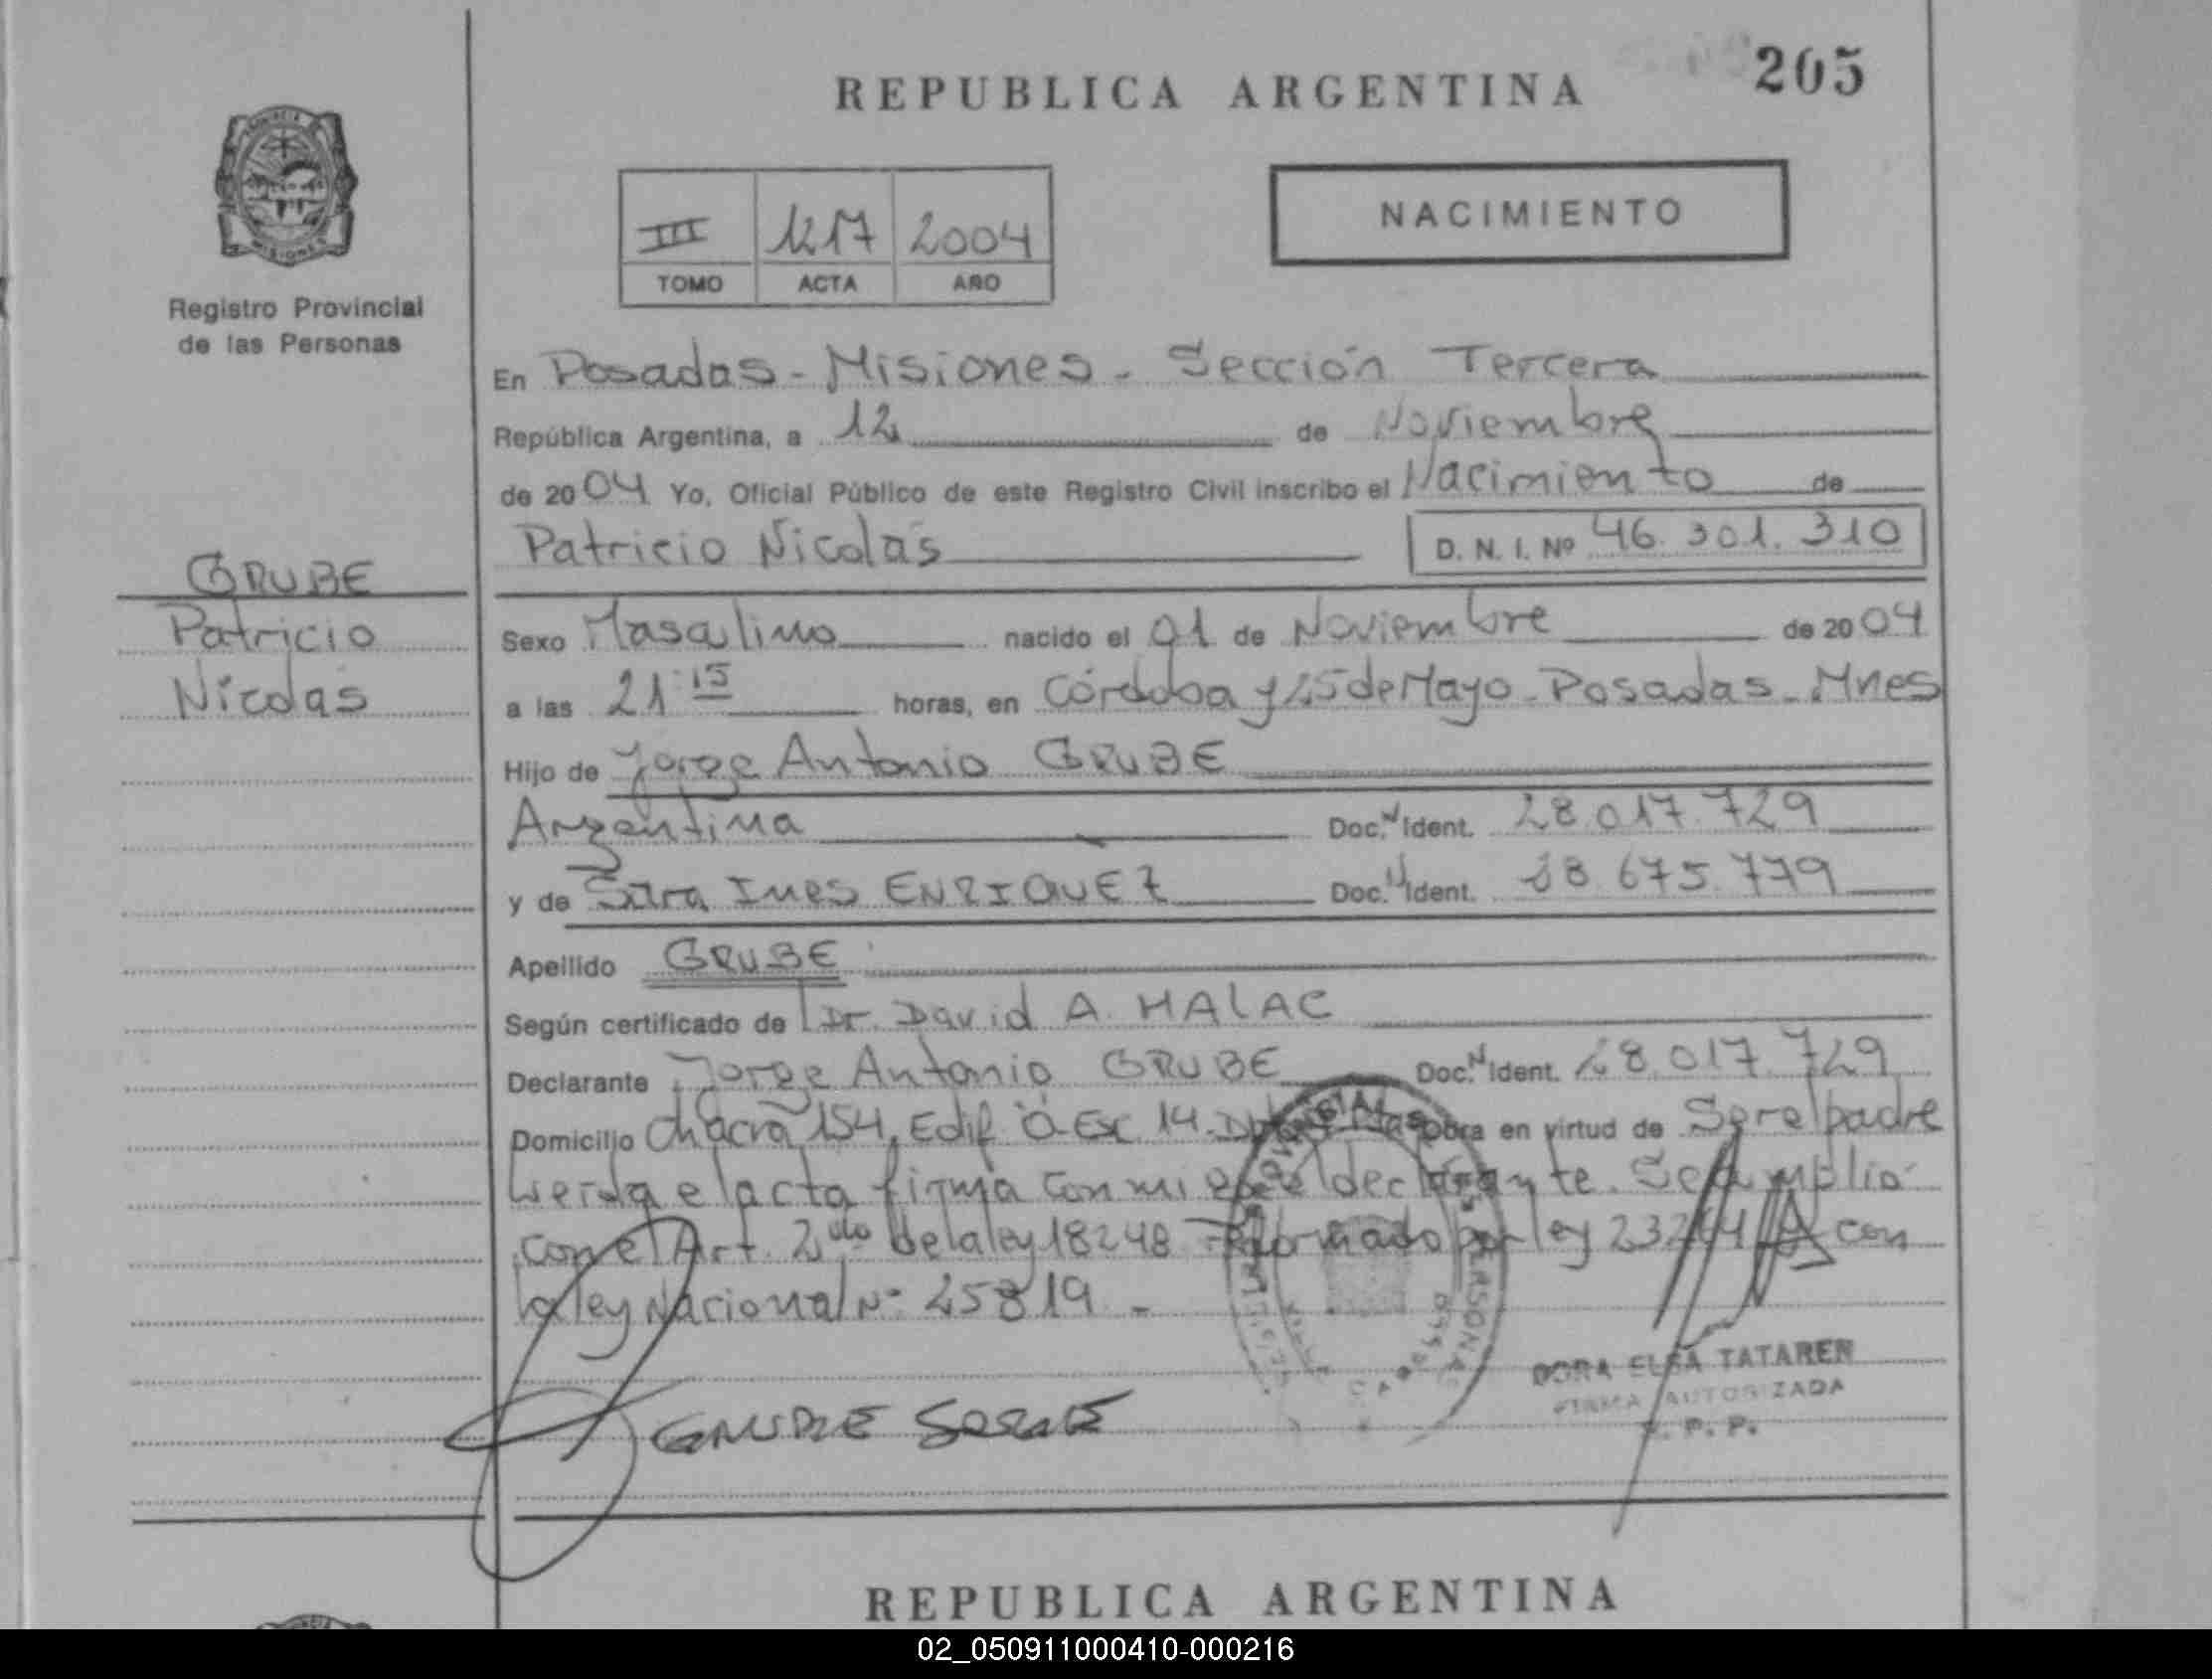 REPUBLICA ARGENTINA
205
III 1217 2004
TOMO ACTA AÑO
NACIMIENTO
Registro Provincial
de las Personas
En Posadas - Misiones - Sección Tercera
República Argentina, a 12 de Noviembre
de 2004 Yo, Oficial Público de este Registro Civil inscribo el Nacimiento de
Patricio Nicolás D. N. I. Nº 46.301.310
GRUBE
Patricio
Nicolás
Sexo Masculino nacido el 01 de Noviembre de 2004
a las 21 15 horas, en Córdoba y 25 de Mayo - Posadas - Mnes
Hijo de Jorge Antonio GRUBE
Argentina Doc. N Ident. 28.017.729
y de Sara Ines ENRIQUEZ Doc. N Ident. 28.675.779
Apellido GRUBE
Según certificado de Dr. David A. HALAC
Declarante Jorge Antonio GRUBE Doc. N Ident. 28.017.729
Domicilio Chacra 154, Edif O Esc 14 Obra en virtud de Ser el padre
Leida el acta firma con mi declarante. Se amplio
con el Art. 2do de la ley 18248 Reformado por ley 23264 con
la ley Nacional Nº 25819 -
GRUBE JORGE
DORA ELSA TATAREN
FIRMA AUTORIZADA
R. P. P.
REPUBLICA ARGENTINA
02_050911000410-000216